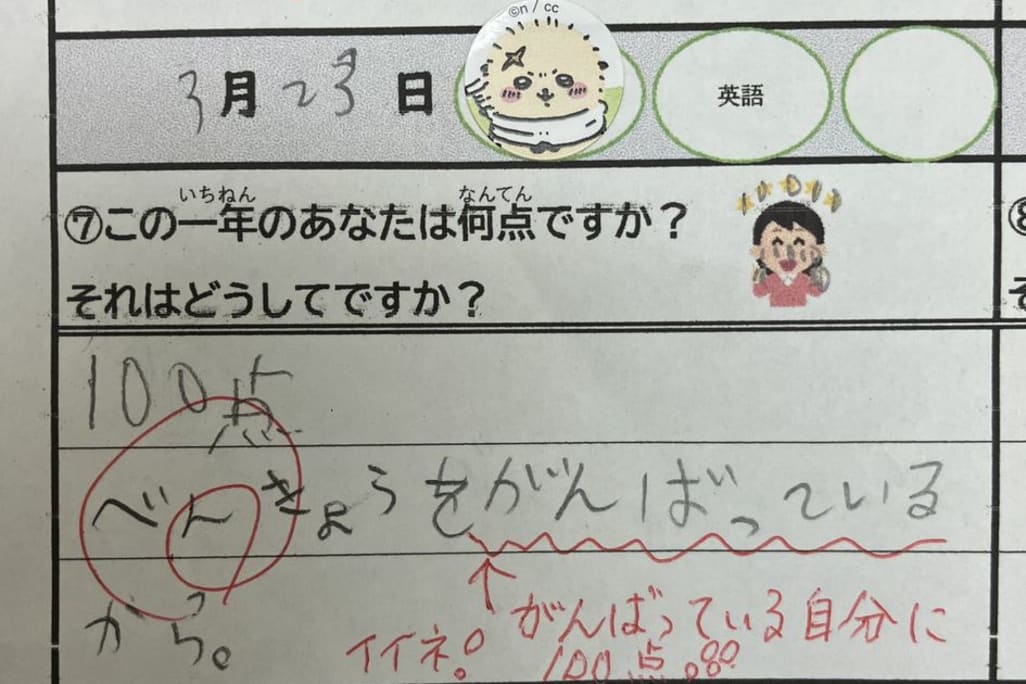 ©n / cc
3月23日
英語
⑦この一年のあなたは何点ですか？
いちねん なんてん
それはどうしてですか？
100点
べんきょうをがんばっている
から。
イイネ！ がんばっている自分に
100点。